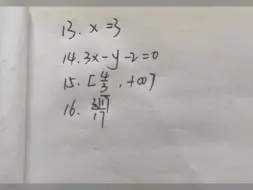 13. x = 3
14. 3x - y - 2 = 0
15. [4/3, +∞)
16. 3√17/17